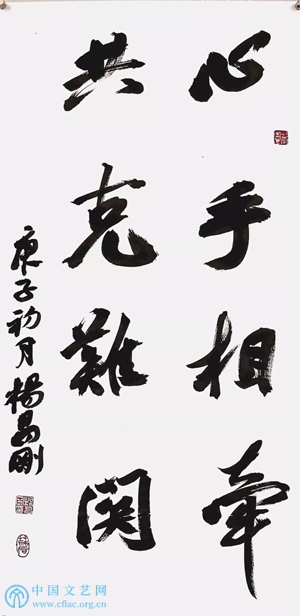 心手相牵
共克難関
庚子初月楊昌刚
中国文艺网
www.cflac.org.cn